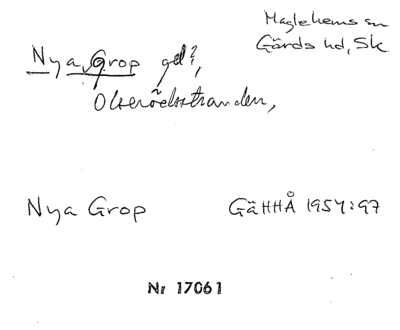 Maglehems sn
Gärds hd, Sk
Nya Grop gd?,
Olseröelsstranden,
Nya Grop GäHHÅ 1954:97
Nr 17061